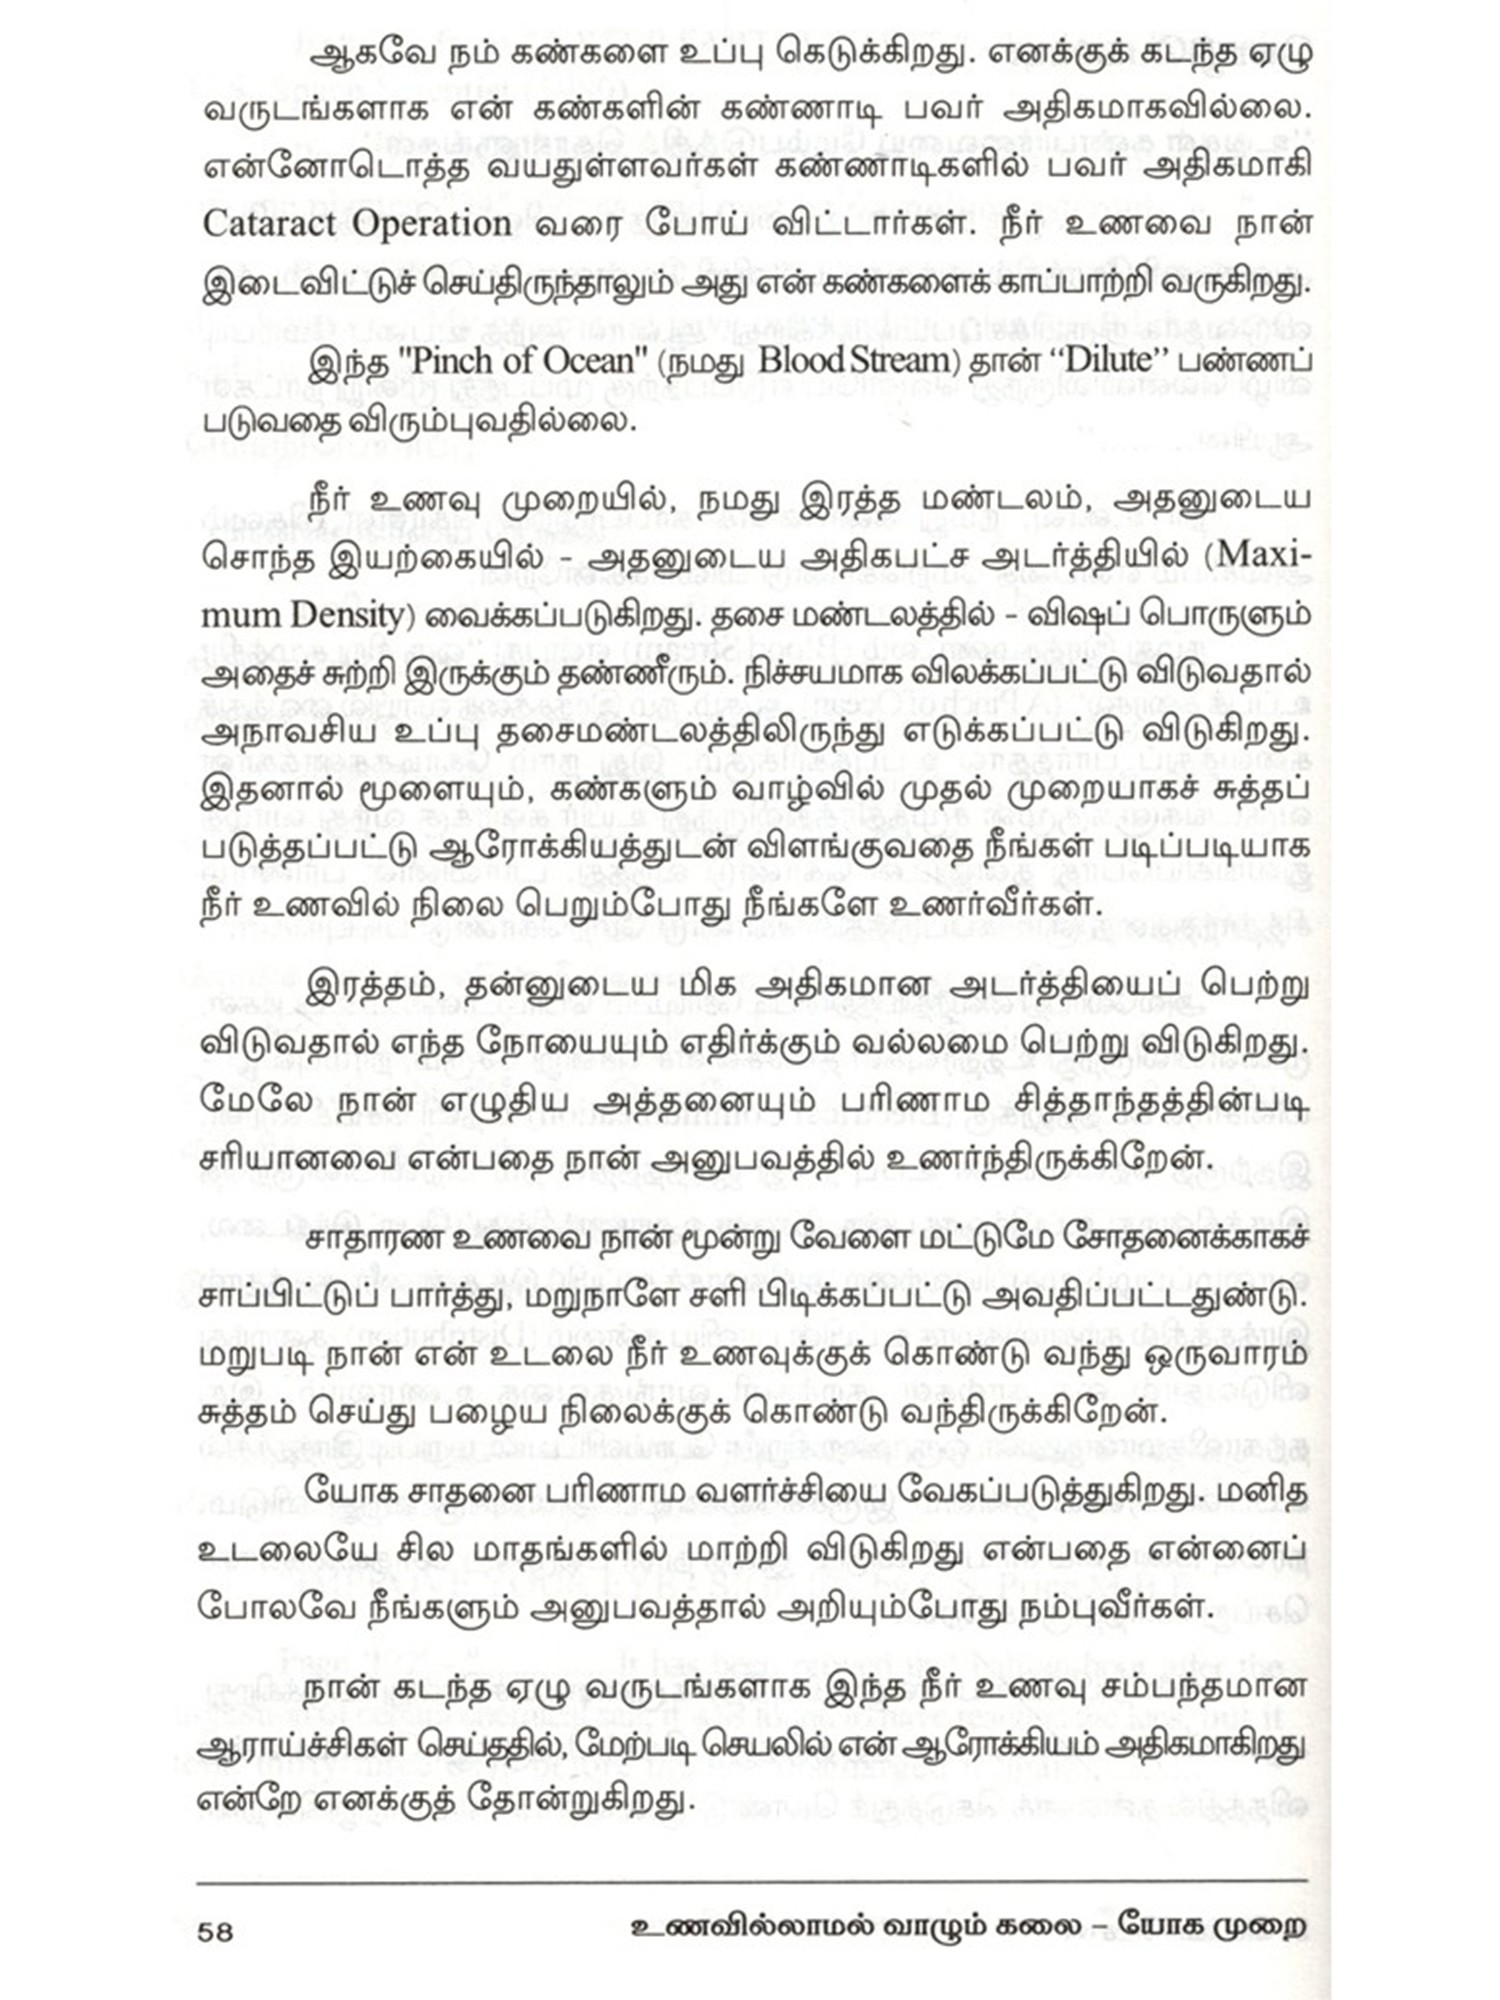 ஆகவே நம் கண்களை உப்பு கெடுக்கிறது. எனக்குக் கடந்த ஏழு
வருடங்களாக என் கண்களின் கண்ணாடி பவர் அதிகமாகவில்லை.
என்னோடொத்த வயதுள்ளவர்கள் கண்ணாடிகளில் பவர் அதிகமாகி
Cataract Operation வரை போய் விட்டார்கள். நீர் உணவை நான்
இடைவிட்டுச் செய்திருந்தாலும் அது என் கண்களைக் காப்பாற்றி வருகிறது.
இந்த "Pinch of Ocean" (நமது Blood Stream) தான் “Dilute” பண்ணப்
படுவதை விரும்புவதில்லை.
நீர் உணவு முறையில், நமது இரத்த மண்டலம், அதனுடைய
சொந்த இயற்கையில் - அதனுடைய அதிகபட்ச அடர்த்தியில் (Maxi-
mum Density) வைக்கப்படுகிறது. தசை மண்டலத்தில் - விஷப் பொருளும்
அதைச் சுற்றி இருக்கும் தண்ணீரும். நிச்சயமாக விலக்கப்பட்டு விடுவதால்
அநாவசிய உப்பு தசைமண்டலத்திலிருந்து எடுக்கப்பட்டு விடுகிறது.
இதனால் மூளையும், கண்களும் வாழ்வில் முதல் முறையாகச் சுத்தப்
படுத்தப்பட்டு ஆரோக்கியத்துடன் விளங்குவதை நீங்கள் படிப்படியாக
நீர் உணவில் நிலை பெறும்போது நீங்களே உணர்வீர்கள்.
இரத்தம், தன்னுடைய மிக அதிகமான அடர்த்தியைப் பெற்று
விடுவதால் எந்த நோயையும் எதிர்க்கும் வல்லமை பெற்று விடுகிறது.
மேலே நான் எழுதிய அத்தனையும் பரிணாம சித்தாந்தத்தின்படி
சரியானவை என்பதை நான் அனுபவத்தில் உணர்ந்திருக்கிறேன்.
சாதாரண உணவை நான் மூன்று வேளை மட்டுமே சோதனைக்காகச்
சாப்பிட்டுப் பார்த்து, மறுநாளே சளி பிடிக்கப்பட்டு அவதிப்பட்டதுண்டு.
மறுபடி நான் என் உடலை நீர் உணவுக்குக் கொண்டு வந்து ஒருவாரம்
சுத்தம் செய்து பழைய நிலைக்குக் கொண்டு வந்திருக்கிறேன்.
யோக சாதனை பரிணாம வளர்ச்சியை வேகப்படுத்துகிறது. மனித
உடலையே சில மாதங்களில் மாற்றி விடுகிறது என்பதை என்னைப்
போலவே நீங்களும் அனுபவத்தால் அறியும்போது நம்புவீர்கள்.
நான் கடந்த ஏழு வருடங்களாக இந்த நீர் உணவு சம்பந்தமான
ஆராய்ச்சிகள் செய்ததில், மேற்படி செயலில் என் ஆரோக்கியம் அதிகமாகிறது
என்றே எனக்குத் தோன்றுகிறது.
58 உணவில்லாமல் வாழும் கலை – யோக முறை